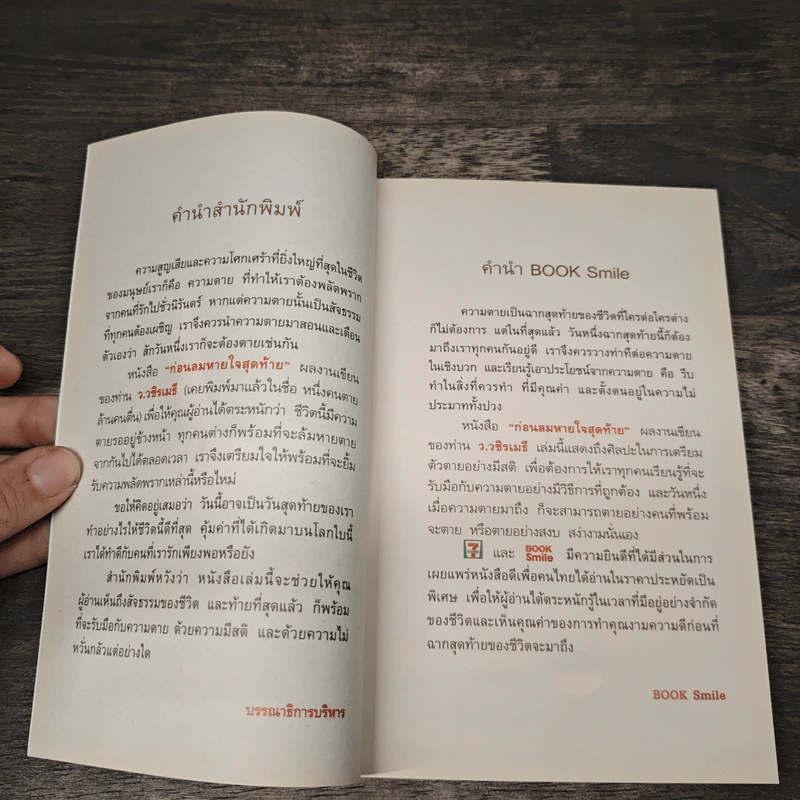 คำนำสำนักพิมพ์
ความสูญเสียและความโศกเศร้าที่ยิ่งใหญ่ที่สุดในชีวิต
ของมนุษย์เราก็คือ ความตาย ที่ทำให้เราต้องพลัดพราก
จากคนที่รักไปชั่วนิรันดร์ หากแต่ความตายนั้นเป็นสัจธรรม
ที่ทุกคนต้องเผชิญ เราจึงควรนำความตายมาสอนและเตือน
ตัวเองว่า สักวันหนึ่งเราก็จะต้องตายเช่นกัน
หนังสือ “ก่อนลมหายใจสุดท้าย” ผลงานเขียน
ของท่าน ว.วชิรเมธี (เคยพิมพ์มาแล้วในชื่อ หนึ่งคนตาย
ล้านคนตื่น) เพื่อให้คุณผู้อ่านได้ตระหนักว่า ชีวิตนี้มีความ
ตายรออยู่ข้างหน้า ทุกคนต่างก็พร้อมที่จะล้มหายตาย
จากกันไปได้ตลอดเวลา เราจึงเตรียมใจให้พร้อมที่จะยิ้ม
รับความพลัดพรากเหล่านี้หรือไหม่
ขอให้คิดอยู่เสมอว่า วันนี้อาจเป็นวันสุดท้ายของเรา
ทำอย่างไรให้ชีวิตนี้ดีที่สุด คุ้มค่าที่ได้เกิดมาบนโลกใบนี้
เราได้ทำดีกับคนที่เรารักเพียงพอหรือยัง
สำนักพิมพ์หวังว่า หนังสือเล่มนี้จะช่วยให้คุณ
ผู้อ่านเห็นถึงสัจธรรมของชีวิต และท้ายที่สุดแล้ว ก็พร้อม
ที่จะรับมือกับความตาย ด้วยความมีสติ และด้วยความไม่
หวั่นกลัวแต่อย่างใด
บรรณาธิการบริหาร
คำนำ BOOK Smile
ความตายเป็นฉากสุดท้ายของชีวิตที่ใครต่อใครต่าง
ก็ไม่ต้องการ แต่ในที่สุดแล้ว วันหนึ่งฉากสุดท้ายนี้ก็ต้อง
มาถึงเราทุกคนกันอยู่ดี เราจึงควรวางท่าทีต่อความตาย
ในเชิงบวก และเรียนรู้เอาประโยชน์จากความตาย คือ รีบ
ทำในสิ่งที่ควรทำ ที่มีคุณค่า และตั้งตนอยู่ในความไม่
ประมาททั้งปวง
หนังสือ “ก่อนลมหายใจสุดท้าย” ผลงานเขียน
ของท่าน ว.วชิรเมธี เล่มนี้แสดงถึงศิลปะในการเตรียม
ตัวตายอย่างมีสติ เพื่อต้องการให้เราทุกคนเรียนรู้ที่จะ
รับมือกับความตายอย่างมีวิธีการที่ถูกต้อง และวันหนึ่ง
เมื่อความตายมาถึง ก็จะสามารถตายอย่างคนที่พร้อม
จะตาย หรือตายอย่างสงบ สง่างามนั่นเอง
7 ELEVEN และ BOOK Smile มีความยินดีที่ได้มีส่วนในการ
เผยแพร่หนังสือดีเพื่อคนไทยได้อ่านในราคาประหยัดเป็น
พิเศษ เพื่อให้ผู้อ่านได้ตระหนักรู้ในเวลาที่มีอยู่อย่างจำกัด
ของชีวิตและเห็นคุณค่าของการทำคุณงามความดีก่อนที่
ฉากสุดท้ายของชีวิตจะมาถึง
BOOK Smile